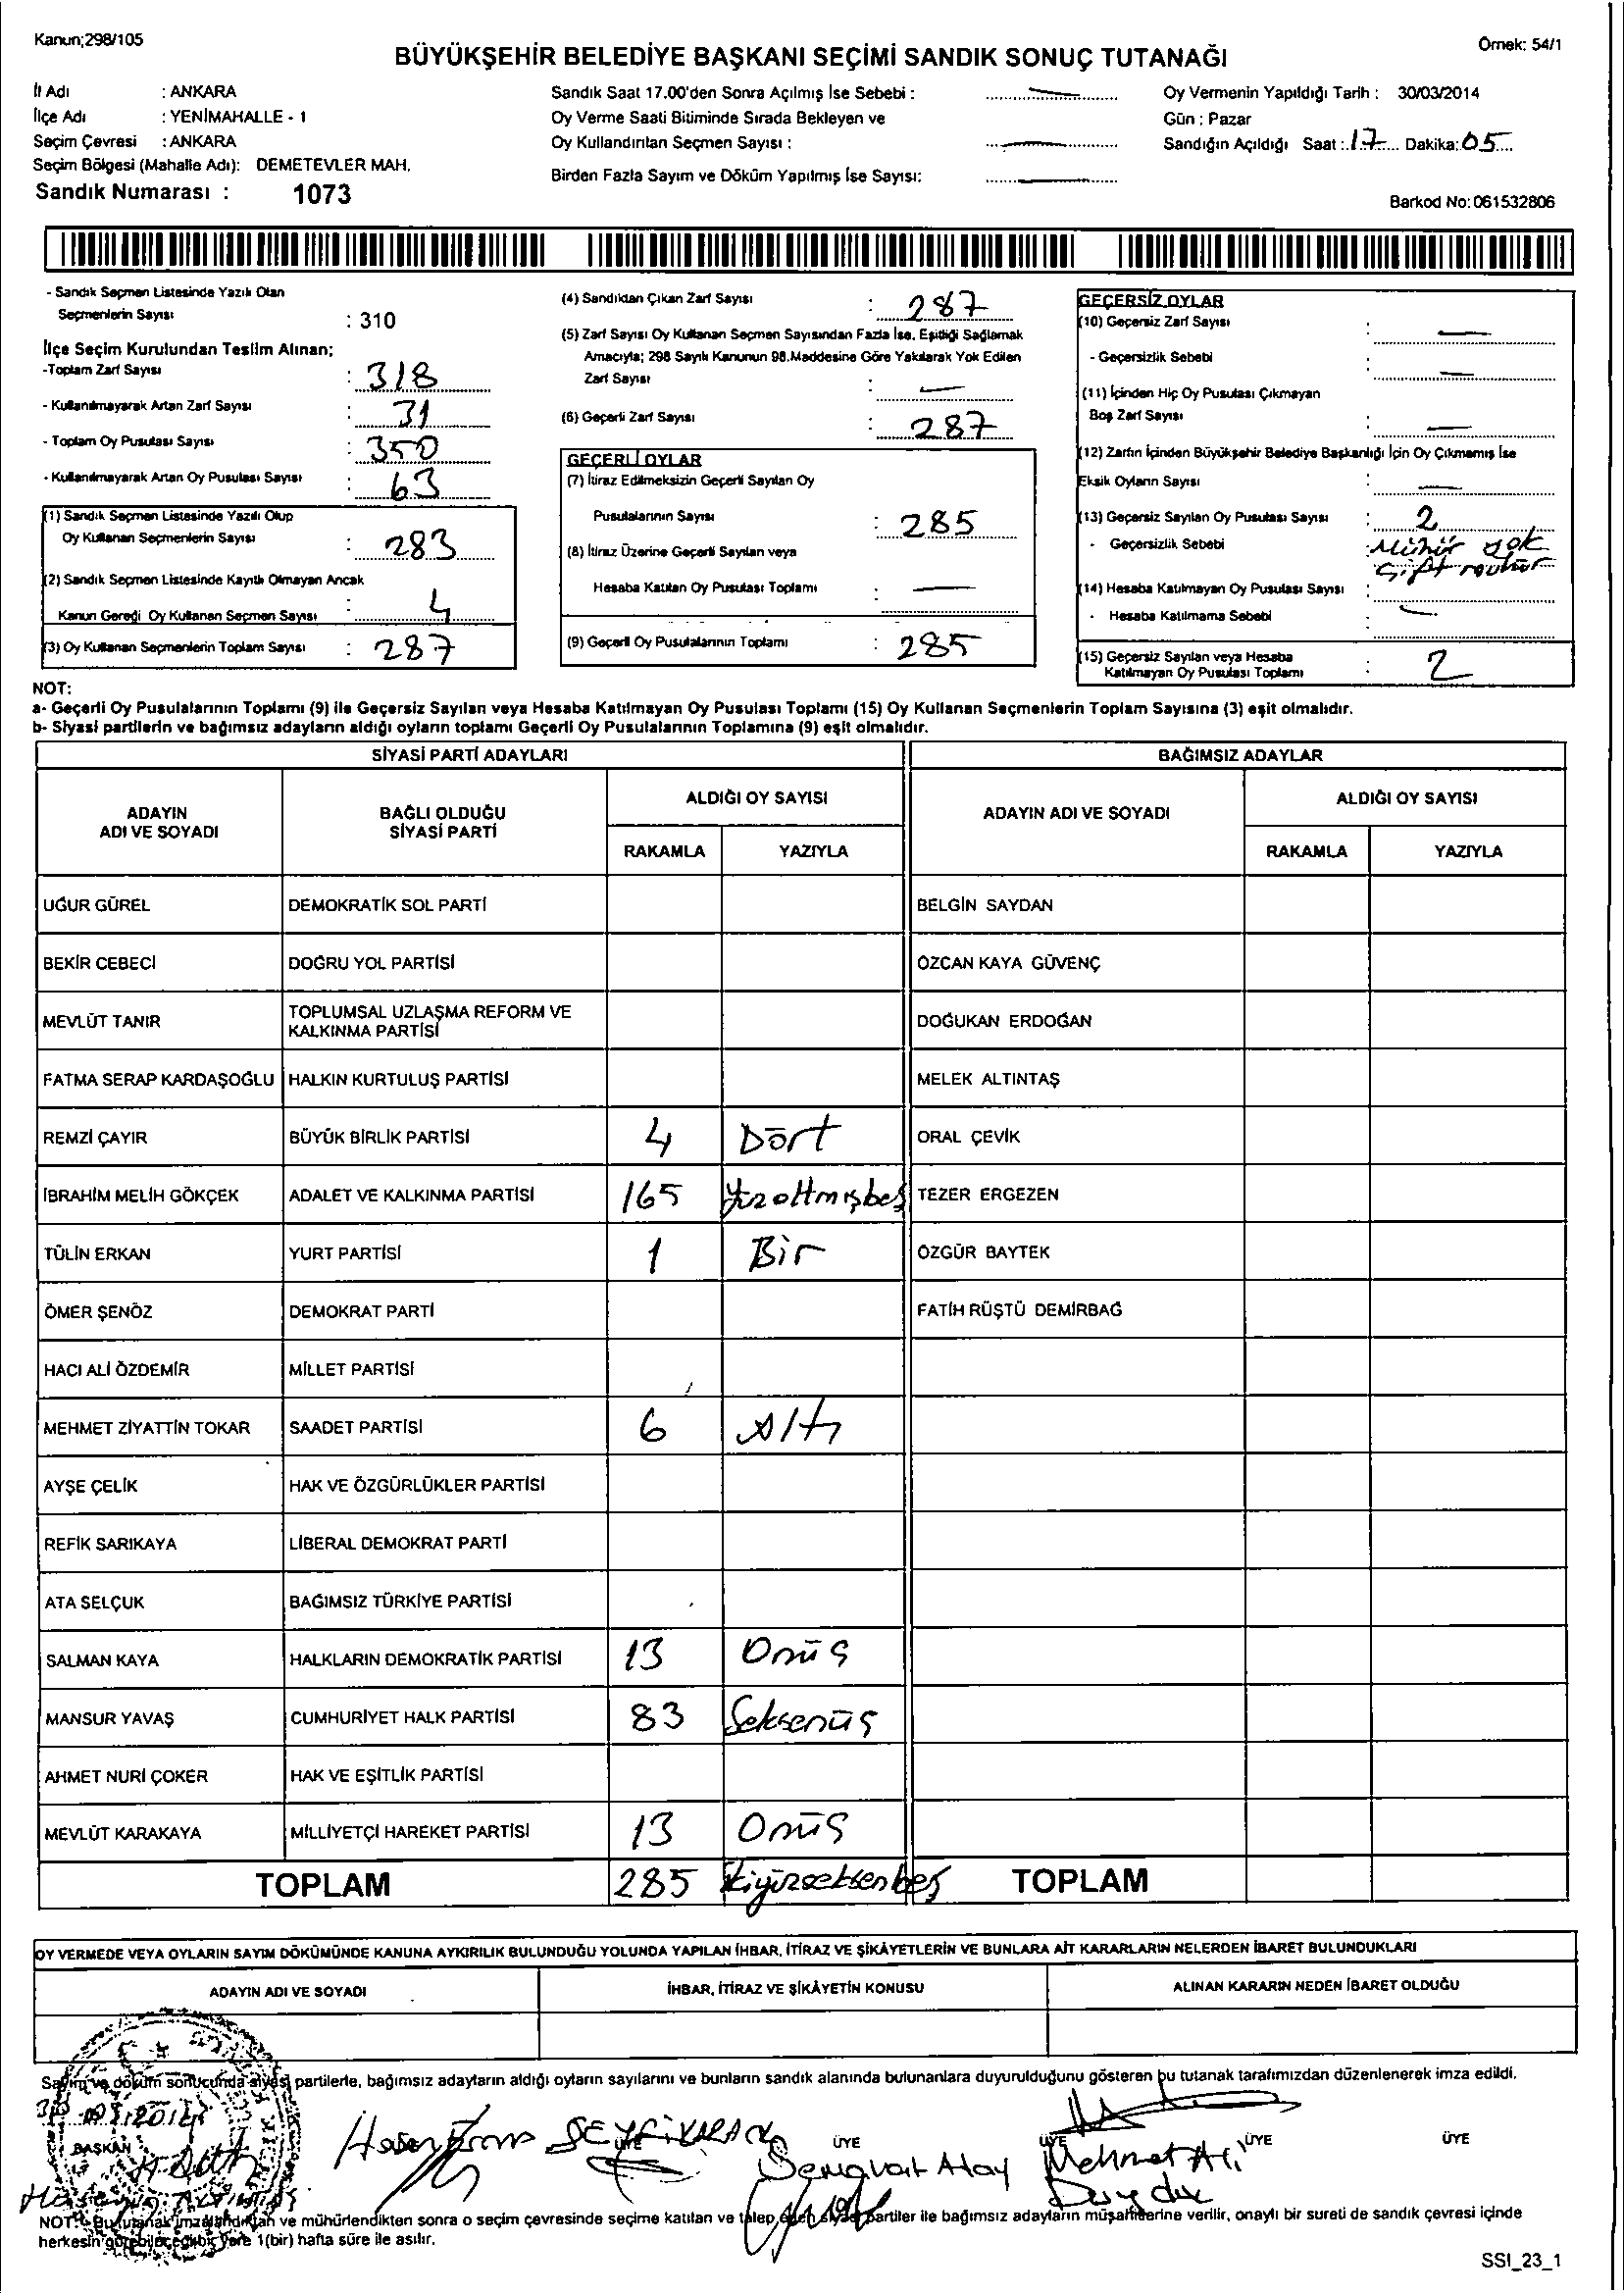 Kanun;298/105
Örnek: 54/1
BÜYÜKŞEHİR BELEDİYE BAŞKANI SEÇİMİ SANDIK SONUÇ TUTANAĞI
İl Adı : ANKARA
İlçe Adı : YENİMAHALLE - 1
Seçim Çevresi : ANKARA
Seçim Bölgesi (Mahalle Adı): DEMETEVLER MAH.
Sandık Numarası : 1073
Sandık Saat 17.00'den Sonra Açılmış İse Sebebi :
Oy Verme Saati Bitiminde Sırada Bekleyen ve
Oy Kullandırılan Seçmen Sayısı :
Birden Fazla Sayım ve Döküm Yapılmış İse Sayısı:
Oy Vermenin Yapıldığı Tarih : 30/03/2014
Gün : Pazar
Sandığın Açıldığı Saat : 17 Dakika: 05
Barkod No: 061532806
- Sandık Seçmen Listesinde Yazılı Olan
Seçmenlerin Sayısı : 310
İlçe Seçim Kurulundan Teslim Alınan;
-Toplam Zarf Sayısı : 318
- Kullanılmayarak Artan Zarf Sayısı : 31
- Toplam Oy Pusulası Sayısı : 350
- Kullanılmayarak Artan Oy Pusulası Sayısı : 63
(1) Sandık Seçmen Listesinde Yazılı Olup
Oy Kullanan Seçmenlerin Sayısı : 283
(2) Sandık Seçmen Listesinde Kayıtlı Olmayan Ancak
Kanun Gereği Oy Kullanan Seçmen Sayısı : 4
(3) Oy Kullanan Seçmenlerin Toplam Sayısı : 287
(4) Sandıktan Çıkan Zarf Sayısı : 287
(5) Zarf Sayısı Oy Kullanan Seçmen Sayısından Fazla İse, Eşitliği Sağlamak
Amacıyla; 298 Sayılı Kanunun 98.Maddesine Göre Yakılarak Yok Edilen
Zarf Sayısı : —
(6) Geçerli Zarf Sayısı : 287
GEÇERLİ OYLAR
(7) İtiraz Edilmeksizin Geçerli Sayılan Oy
Pusulalarının Sayısı : 285
(8) İtiraz Üzerine Geçerli Sayılan veya
Hesaba Katılan Oy Pusulası Toplamı : —
(9) Geçerli Oy Pusulalarının Toplamı : 285
GEÇERSİZ OYLAR
(10) Geçersiz Zarf Sayısı : —
- Geçersizlik Sebebi : —
(11) İçinden Hiç Oy Pusulası Çıkmayan
Boş Zarf Sayısı : —
(12) Zarfın İçinden Büyükşehir Belediye Başkanlığı İçin Oy Çıkmamış İse
Eksik Oyların Sayısı : —
(13) Geçersiz Sayılan Oy Pusulası Sayısı : 2
- Geçersizlik Sebebi : Mühür yok
Çift mühür
(14) Hesaba Katılmayan Oy Pusulası Sayısı :
- Hesaba Katılmama Sebebi : —
(15) Geçersiz Sayılan veya Hesaba
Katılmayan Oy Pusulası Toplamı : 2
NOT:
a- Geçerli Oy Pusulalarının Toplamı (9) ile Geçersiz Sayılan veya Hesaba Katılmayan Oy Pusulası Toplamı (15) Oy Kullanan Seçmenlerin Toplam Sayısına (3) eşit olmalıdır.
b- Siyasi partilerin ve bağımsız adayların aldığı oyların toplamı Geçerli Oy Pusulalarının Toplamına (9) eşit olmalıdır.
SİYASİ PARTİ ADAYLARI BAĞIMSIZ ADAYLAR
ADAYIN
ADI VE SOYADI
BAĞLI OLDUĞU
SİYASİ PARTİ
ALDIĞI OY SAYISI
RAKAMLA YAZIYLA
ADAYIN ADI VE SOYADI
ALDIĞI OY SAYISI
RAKAMLA YAZIYLA
UĞUR GÜREL DEMOKRATİK SOL PARTİ BELGİN SAYDAN
BEKİR CEBECİ DOĞRU YOL PARTİSİ ÖZCAN KAYA GÜVENÇ
MEVLÜT TANIR TOPLUMSAL UZLAŞMA REFORM VE
KALKINMA PARTİSİ DOĞUKAN ERDOĞAN
FATMA SERAP KARDAŞOĞLU HALKIN KURTULUŞ PARTİSİ MELEK ALTINTAŞ
REMZİ ÇAYIR BÜYÜK BİRLİK PARTİSİ 4 Dört ORAL ÇEVİK
İBRAHİM MELİH GÖKÇEK ADALET VE KALKINMA PARTİSİ 165 Yüzaltmışbeş TEZER ERGEZEN
TÜLİN ERKAN YURT PARTİSİ 1 Bir ÖZGÜR BAYTEK
ÖMER ŞENÖZ DEMOKRAT PARTİ FATİH RÜŞTÜ DEMİRBAĞ
HACI ALİ ÖZDEMİR MİLLET PARTİSİ
MEHMET ZİYATTİN TOKAR SAADET PARTİSİ 6 Altı
AYŞE ÇELİK HAK VE ÖZGÜRLÜKLER PARTİSİ
REFİK SARIKAYA LİBERAL DEMOKRAT PARTİ
ATA SELÇUK BAĞIMSIZ TÜRKİYE PARTİSİ
SALMAN KAYA HALKLARIN DEMOKRATİK PARTİSİ 13 Onüç
MANSUR YAVAŞ CUMHURİYET HALK PARTİSİ 83 Seksenüç
AHMET NURİ ÇOKER HAK VE EŞİTLİK PARTİSİ
MEVLÜT KARAKAYA MİLLİYETÇİ HAREKET PARTİSİ 13 Onüç
TOPLAM 285 İkiyüzseksenbeş TOPLAM
OY VERMEDE VEYA OYLARIN SAYIM DÖKÜMÜNDE KANUNA AYKIRILIK BULUNDUĞU YOLUNDA YAPILAN İHBAR, İTİRAZ VE ŞİKÂYETLERİN VE BUNLARA AİT KARARLARIN NELERDEN İBARET BULUNDUKLARI
ADAYIN ADI VE SOYADI İHBAR, İTİRAZ VE ŞİKÂYETİN KONUSU ALINAN KARARIN NEDEN İBARET OLDUĞU
Sayım ve döküm sonucunda siyasi partilerle, bağımsız adayların aldığı oyların sayılarını ve bunların sandık alanında bulunanlara duyurulduğunu gösteren bu tutanak tarafımızdan düzenlenerek imza edildi.
BAŞKAN ÜYE ÜYE ÜYE ÜYE ÜYE
Mehmet Ali
NOT: Bu tutanak imzalandıktan ve mühürlendikten sonra o seçim çevresinde seçime katılan ve talep eden siyasi partiler ile bağımsız adayların müşahitlerine verilir, onaylı bir sureti de sandık çevresi içinde
herkesin görebileceği bir yere 1(bir) hafta süre ile asılır.
SSI_23_1